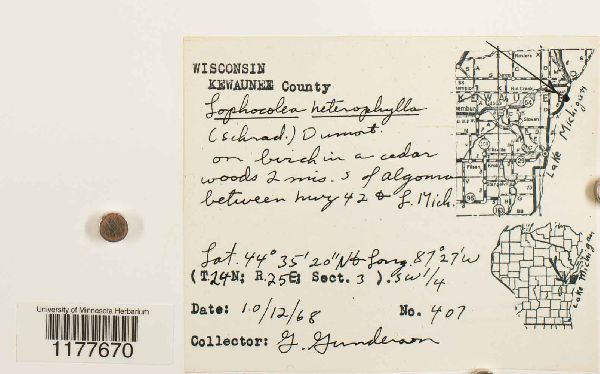 WISCONSIN
KEWAUNEE County
Lophocolea heterophylla
(Schrad.) Dumort.
on birch in a cedar
woods 2 mis. S of Algoma
between hwy 42 & L. Mich.
Lat. 44° 35' 20" N & Long 87° 27' W
(T24N; R.25E; Sect. 3 ). SW 1/4
Date: 10/12/68 No. 407
Collector: G. Gunderson
University of Minnesota Herbarium
1177670
KEWAUNEE
Lake Michigan
Lake Michigan